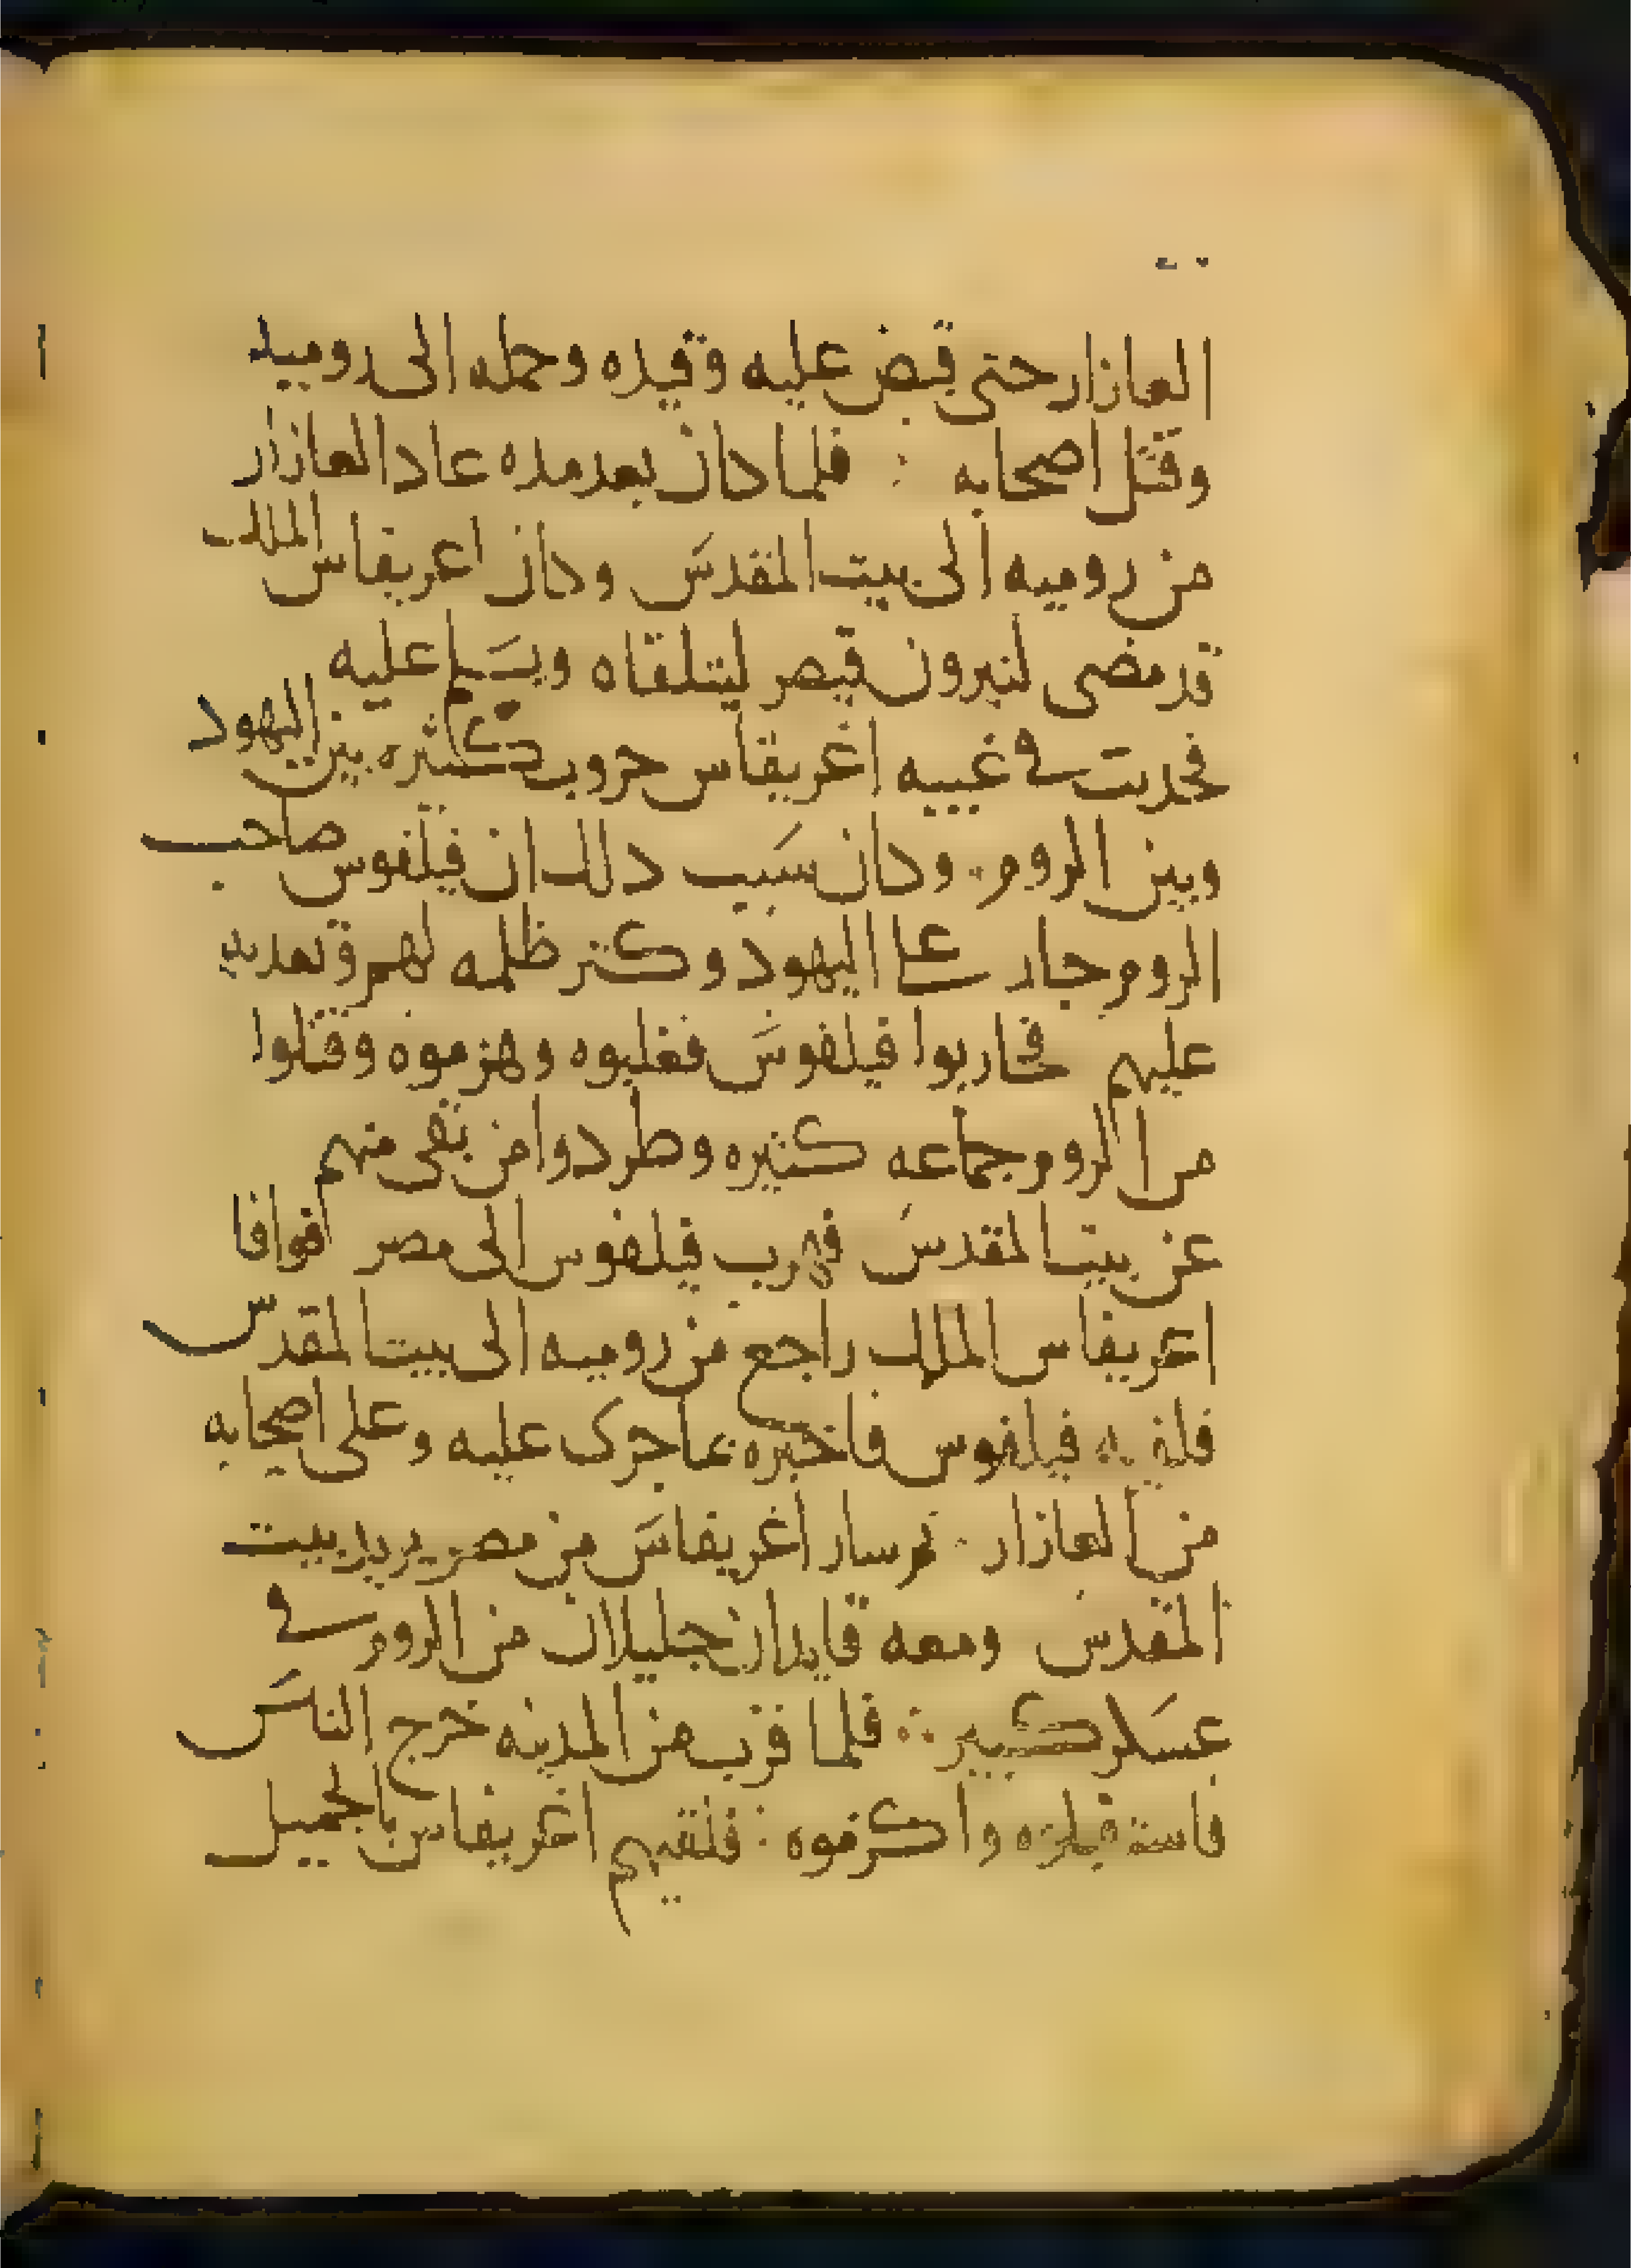 العازار حتى قبض عليه وقيده وحمله الى روميه
وقتل اصحابه فلما كان بعد مده عاد العازار
من روميه الى بيت المقدس وكان اغريفاس الملك
قد مضى لنيرون قيصر ليتلقاه ويسلم عليه
فحدثت في غيبه اغريفاس حروب كثيره بين اليهود
وبين الروم وكان سبب دلك ان فيلفوس صاحب
الروم جار على اليهود وكثر ظلمه لهم وتعديه
عليهم فحاربوا فيلفوس فغلبوه وهزموه وقتلوا
من الروم جماعه كثيره وطردوا من بقى منهم
عن بيت المقدس فهرب فيلفوس الى مصر فوافا
اغريفاس الملك راجع من روميه الى بيت المقدس
فلقيه فيلفوس فاخبره بما جرى عليه وعلى اصحابه
من العازار ثم سار اغريفاس من مصر يريد بيت
المقدس ومعه قايدان جليلان من الروم في
عسكر كبير فلما قرب من المدينه خرج الناس
واكرموه فلقيهم اغريفاس بالجميل